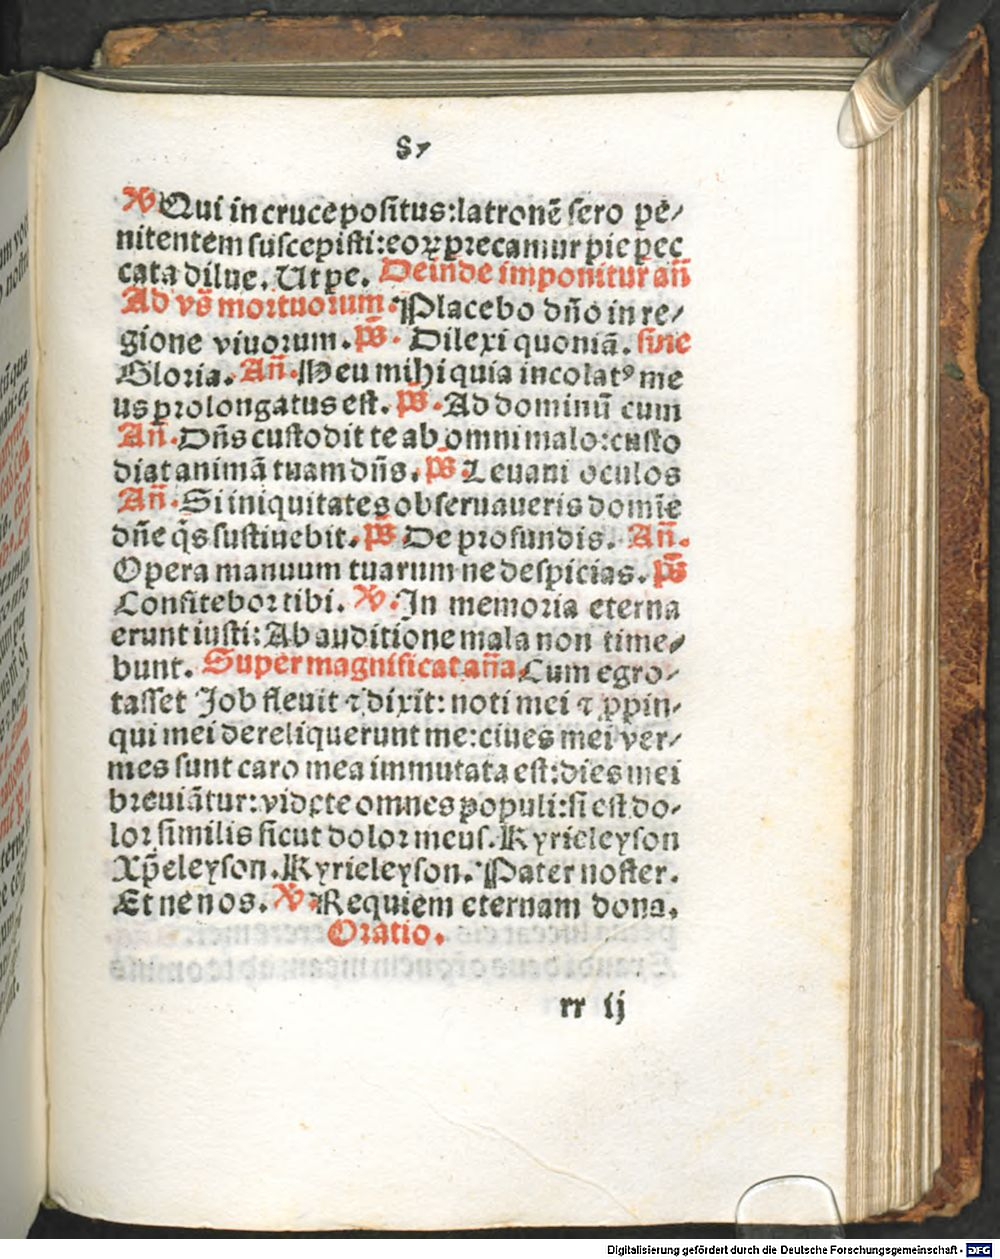 87
℣ Qui in cruce positus: latronē sero pe/
nitentem suscepisti: eoꝝ precamur pie pec
cata dilue. Ut pe. Deinde imponitur añ
Ad vs̄ mortuorum. Placebo dño in re/
gione viuorum. ps̄. Dilexi quoniā. sine
Gloria. Añ. Heu mihi quia incolatꝰ me
us prolongatus est. ps̄. Ad dominū cum
Añ. Dñs custodit te ab omni malo: custo
diat animā tuam dñs. ps̄. Leuaui oculos
Añ. Si iniquitates obseruaueris domie
dñe q̇s sustinebit. ps̄. De profundis. Añ.
Opera manuum tuarum ne despicias. ps̄
Confitebor tibi. ℣. In memoria eterna
erunt iusti: Ab auditione mala non time/
bunt. Super magnificat aña. Cum egro/
tasset Job fleuit ⁊ dixit: noti mei ⁊ ꝓpin/
qui mei dereliquerunt me: ciues mei ver/
mes sunt caro mea immutata est: dies mei
breuiātur: videte omnes populi: si est do/
lor similis sicut dolor meus. Kyrieleyson
Xp̄eleyson. Kyrieleyson. Pater noster.
Et ne nos. ℣. Requiem eternam dona.
Oratio.
rr ij
Digitalisierung gefördert durch die Deutsche Forschungsgemeinschaft - DFG